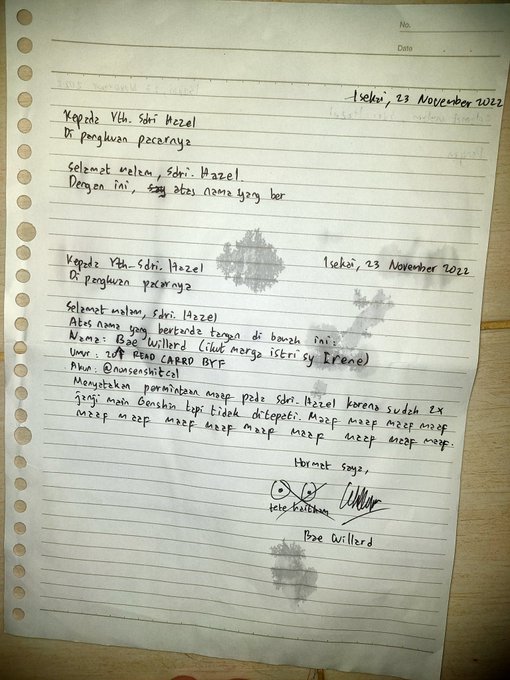 No.
Date
Isekai, 23 November 2022
Kepada Yth. Sdri Hazel
Di pangkuan pacarnya
Selamat malam, Sdri. Hazel.
Dengan ini, say atas nama yang ber
Isekai, 23 November 2022
Kepada Yth. Sdri. Hazel
Di pangkuan pacarnya
Selamat malam, Sdri. Hazel
Atas nama yang bertanda tangan di bawah ini:
Nama: Bae Willard (ikut marga istri sy [Irene)
Umur: 20↑ READ CARRD BYF
Akun: @nonsenshitcal
Menyatakan permintaan maaf pada Sdri. Hazel karena sudah 2x
janji main Genshin tapi tidak ditepati. Maaf maaf maaf maaf
maaf maaf maaf maaf maaf maaf maaf maaf maaf.
Hormat saya,
tete haitham
Bae Willard